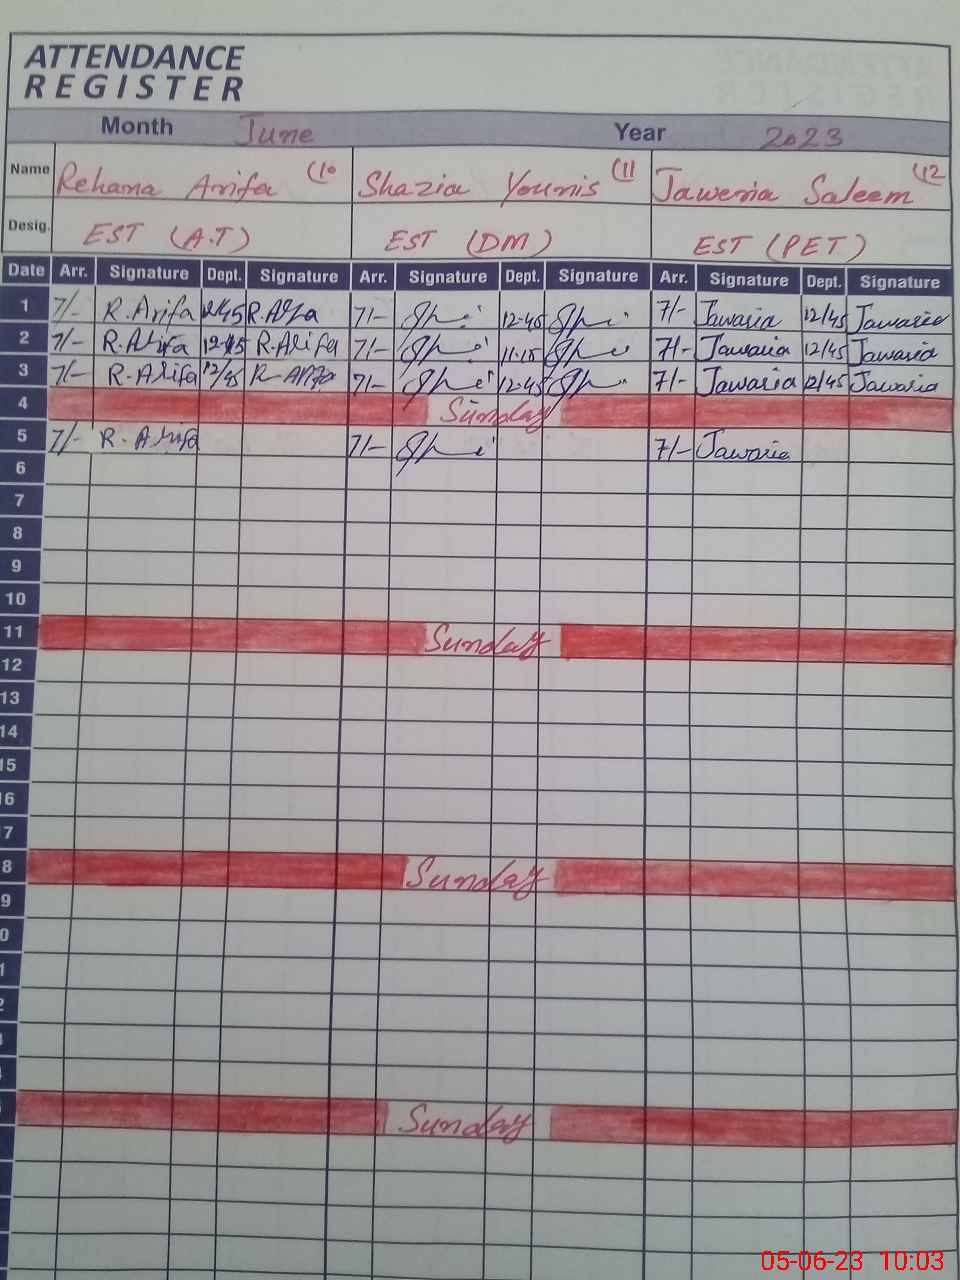 ATTENDANCE
REGISTER
Month June Year 2023
Name Rehana Arifa (10 Shazia Younis (11 Jaweria Saleem (12
Desig. EST (A.T) EST (DM) EST (PET)
Date Arr. Signature Dept. Signature Arr. Signature Dept. Signature Arr. Signature Dept. Signature
1 7/- R.Arifa 12/45 R.Arifa 7/- 12-45 7/- Jawaria 12/45 Jawaria
2 7/- R.Arifa 12-45 R.Arifa 7/- 11-15 7/- Jawaria 12/45 Jawaria
3 7/- R-Arifa 12/45 R-Arifa 7/- 12-45 7/- Jawaria 12/45 Jawaria
4 Sunday
5 7/- R-Arifa 7/- 7/- Jawaria
6
7
8
9
10
11 Sunday
12
13
14
15
16
17
8 Sunday
9
0
1
2
Sunday
05-06-23 10:03